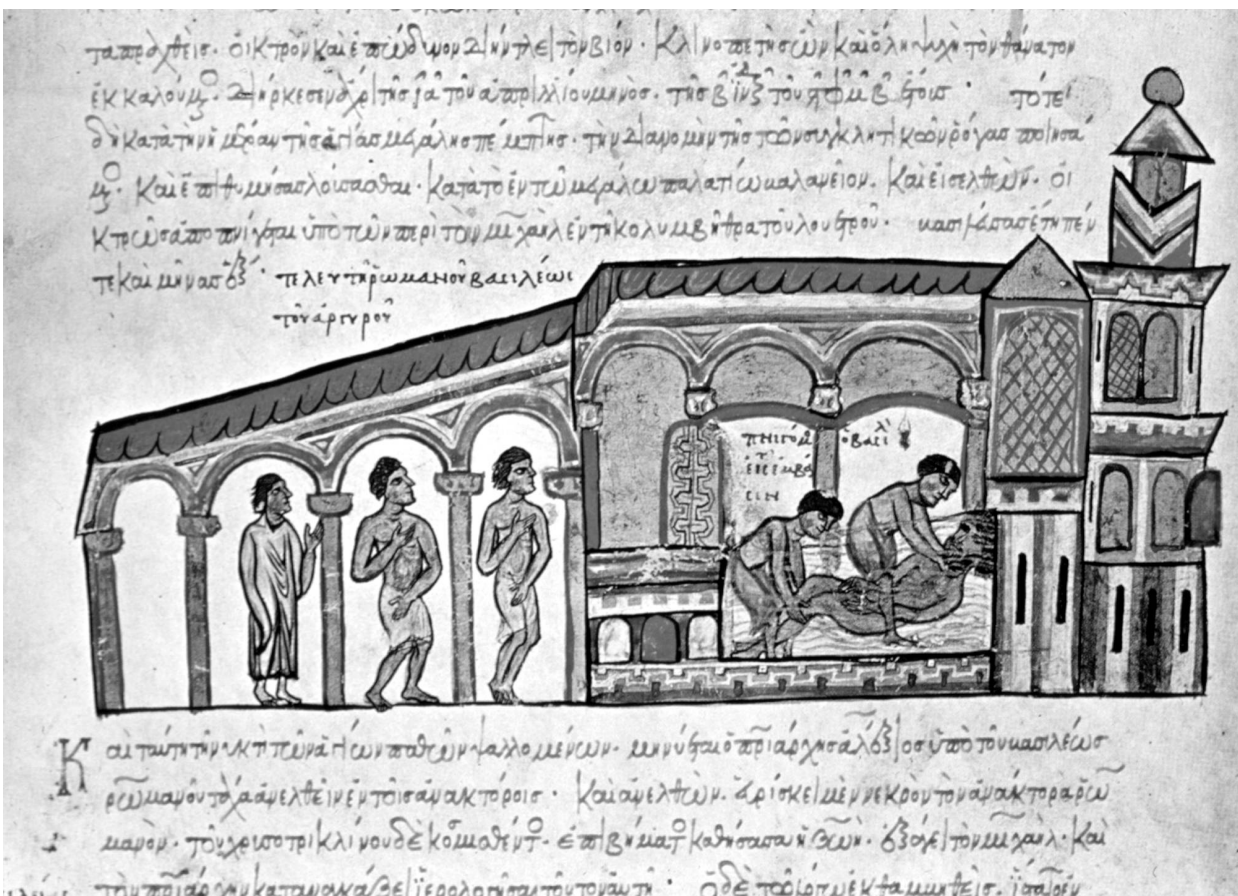 ταραχθεὶς· οἰκτρὸν καὶ ἐπώδυνον διήντλει τὸν βίον· κλινοπετὴς ὢν καὶ ὅλη ψυχῆ τὸν θάνατον
ἐκκαλούμ · διήρκεσεν ἄχρι τῆς ια τοῦ ἀπριλλίου μηνὸς· τῆς β ἰνδ τοῦ ϛφμβ ἔτους· τότε
δὴ κατὰ τὴν ἡμέραν τῆς ἁγίας μεγάλης πέμπτης· τὴν διανομὴν τῆς τῶν συγκλητικῶν ῥόγας ποιησά
μ · καὶ ἐπιθυμήσας λούσασθαι· κατὰ τὸ ἐν τῶ μεγάλω παλατίω βαλανεῖον· καὶ εἰσελθὼν· οἰ
κτρῶς ἀποπνίγεται ὑπὸ τῶν περὶ τὸν μιχαὴλ ἐν τῆ κολυμβήθρα τοῦ λουτροῦ· βασιλεύσας ἔτη πέν
τε καὶ μῆνας ἓξ· τελευτὴ ῥωμανοῦ βασιλέως
τοῦ ἀργυροῦ
πνιγόμ ὁ βασιλ
ἐμβά
σει
Καὶ ταύτη τῆ νυκτὶ τῶν ἁγίων παθῶν ψαλλομένων· μηνύεται ὁ πριάρχης ἀλέξιος ὑπὸ τοῦ βασιλέως
ῥωμανοῦ τάχα ἀνελθεῖν ἐν τοῖς ἀνακτόροις· καὶ ἀνελθὼν· εὑρίσκει μὲν νεκρὸν τὸν ἀνάκτορα ῥω
μανόν· τοῦ χρυσοτρικλίνου δὲ κοσμηθέντ · ἐπὶ βήματ καθήσασα ἡ ζωὴ· ἐξάγει τὸν μιχαὴλ· καὶ
τὸν πριάρχην καταναγκάζει ἱερολογῆσαι τοῦτον αὐτῆ· ὁ δὲ